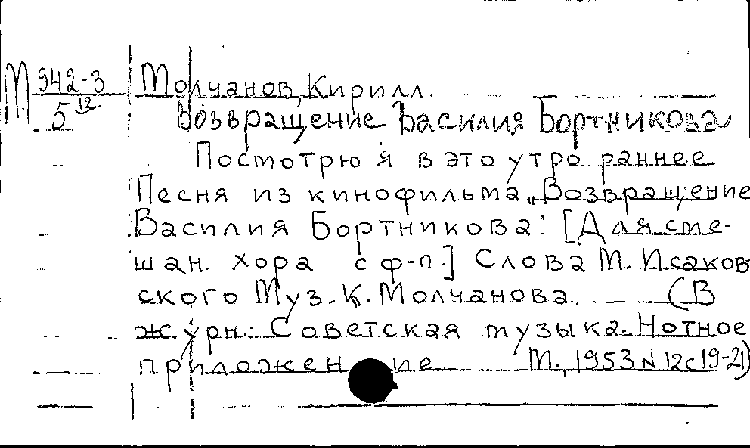 М 942-3/5 12 Молчанов, Кирилл.
Возвращение Василия Бортникова
Посмотрю я в это утро раннее
Песня из кинофильма „Возвращение
Василия Бортникова: [Для сме-
шан. хора с ф-п.] Слова М. Исаков
ского Муз. К. Молчанова. (В
журн.: Советская музыка. Нотное
приложение М., 1953 N 12 с 19-21)